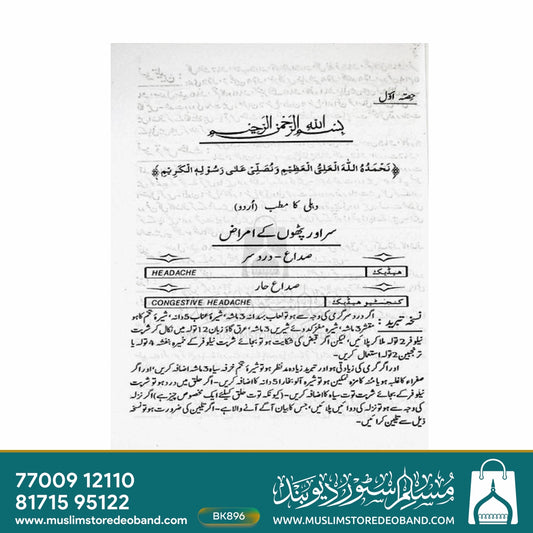 حصہ اوّل
بسم اللہ الرحمن الرحیم
﴿ نَحْمَدُهُ اللهَ الْعَلِيَّ الْعَظِيْمَ وَنُصَلِّيْ عَلٰى رَسُوْلِهِ الْكَرِيْمِ ﴾
دہلی کا مطب (اُردو)
سر اور پٹھوں کے امراض
صداع - درد سر
HEADACHE ہیڈیک
صداع حار
CONGESTIVE HEADACHE کنجسٹیو ہیڈیک
نسخہ تبرید : اگر درد سر گرمی کی وجہ سے ہو تو لعاب بہدانہ 3 ماشہ، شیرۂ عناب 5 دانہ، شیرۂ تخم کاہو
مقشر 3 ماشہ، شیرہ مغز کدوئے شیریں 3 ماشہ، عرق گاؤ زبان 12 تولہ میں نکال کر شربت
نیلوفر 2 تولہ ملا کر پلائیں، لیکن اگر قبض کی شکایت ہو تو بجائے شربت نیلوفر کے خمیرہ بنفشہ 4 تولہ یا
ترنجبین 2 تولہ استعمال کریں۔
اگر گرمی کی زیادتی ہو اور تبرید زیادہ مد نظر ہو تو شیرۂ تخم خرفہ سیاہ 3 ماشہ کا اضافہ کریں، اور اگر
صفراء کا غلبہ ہو یا منہ کا مزہ نمکین ہو تو شیرہ آلو بخارا 5 دانہ کا اضافہ کریں۔ اگر حلق میں درد ہو تو شربت
نیلوفر کے بجائے شربت توت سیاہ کا اضافہ کریں۔ (کیونکہ توت حلق کیلئے ایک مخصوص چیز ہے) اگر نزلہ
کی وجہ سے ہو تو نزلہ کی دوائیں پلائیں، جس کا بیان آگے آنے والا ہے۔ اگر تلیین کی ضرورت ہو تو نسخہ
ذیل سے تلیین کرائیں۔
77009 12110
81715 95122
www.muslimstoredeoband.com
BK896
مسلم سٹور دیوبند
WWW.MUSLIMSTOREDEOBAND.COM